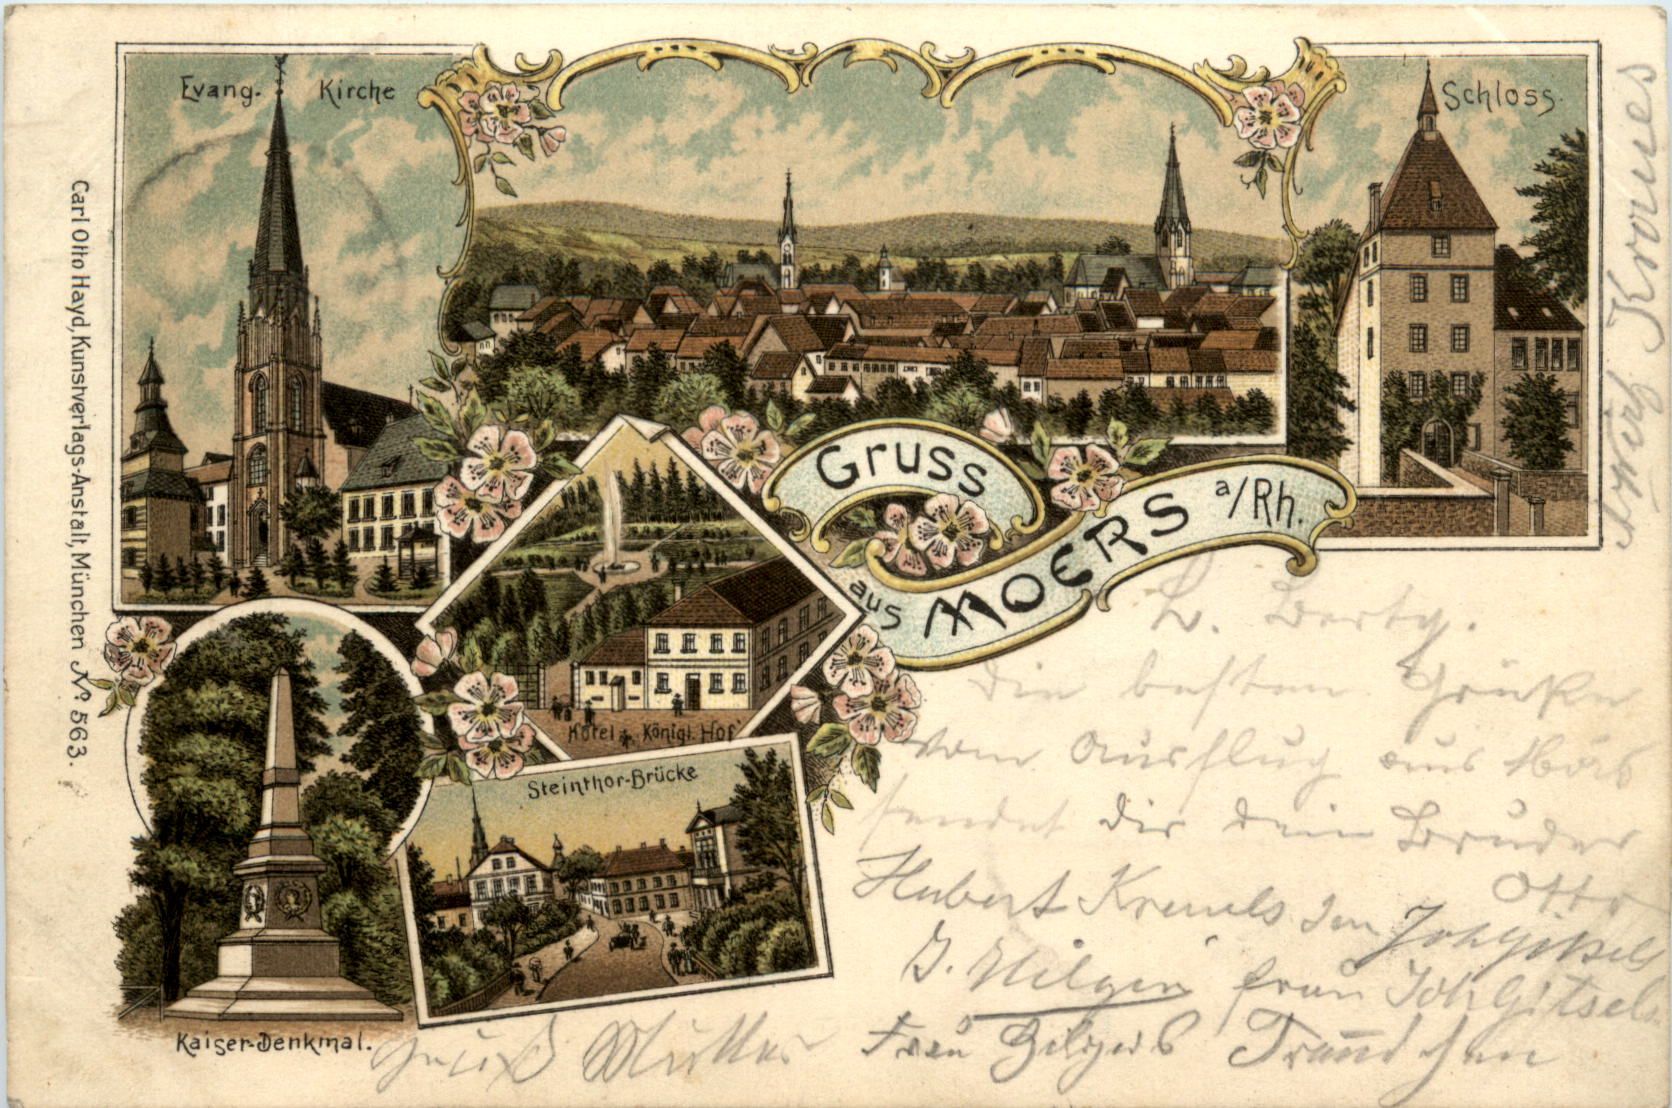 Evang. Kirche
Schloss.
Carl Otto Hayd, Kunstverlags-Anstalt, München No 563.
Gruss
aus MOERS a/Rh.
Hotel Königl. Hof
Steinthor-Brücke
Kaiser-Denkmal.
Die besten Grüße
vom Ausflug aus Mörs
sendet dir dein Bruder
Otto
Hubert
J. Hilgen Frau
Frau
Gruß Mutter